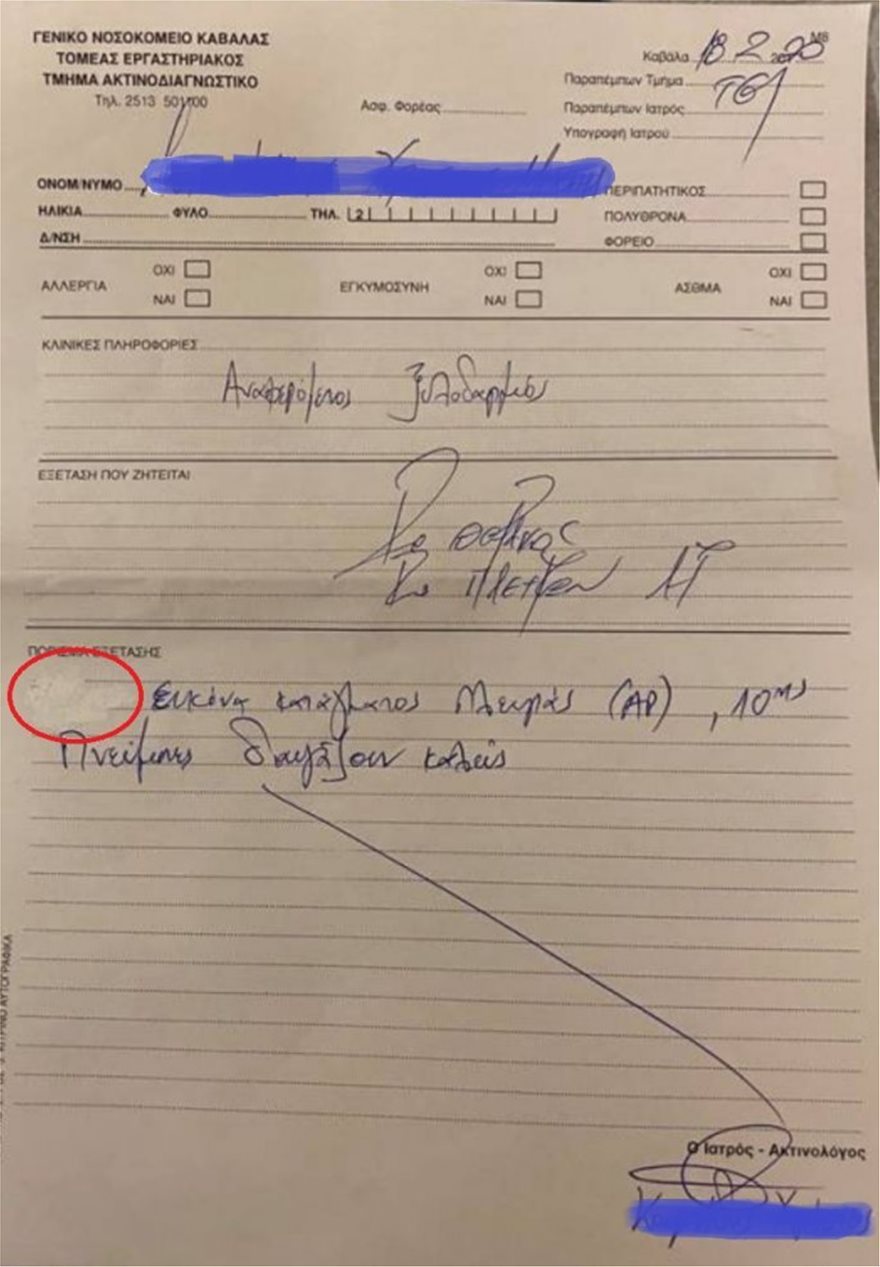 ΓΕΝΙΚΟ ΝΟΣΟΚΟΜΕΙΟ ΚΑΒΑΛΑΣ
ΤΟΜΕΑΣ ΕΡΓΑΣΤΗΡΙΑΚΟΣ
ΤΜΗΜΑ ΑΚΤΙΝΟΔΙΑΓΝΩΣΤΙΚΟ
Τηλ. 2513 501100
Μ8
Καβάλα 18 2 2020
Ασφ. Φορέας
Παραπέμπων Τμήμα
Παραπέμπων Ιατρός
Υπογραφή Ιατρού
ΟΝΟΜ/ΝΥΜΟ
ΗΛΙΚΙΑ ΦΥΛΟ ΤΗΛ. 2
Δ/ΝΣΗ
ΠΕΡΙΠΑΤΗΤΙΚΟΣ
ΠΟΛΥΘΡΟΝΑ
ΦΟΡΕΙΟ
ΑΛΛΕΡΓΙΑ ΟΧΙ ΝΑΙ
ΕΓΚΥΜΟΣΥΝΗ ΟΧΙ ΝΑΙ
ΑΣΘΜΑ ΟΧΙ ΝΑΙ
ΚΛΙΝΙΚΕΣ ΠΛΗΡΟΦΟΡΙΕΣ
Αναφερόμενος ξυλοδαρμός
ΕΞΕΤΑΣΗ ΠΟΥ ΖΗΤΕΙΤΑΙ
Ro θώρακος
Ro πλευρών
ΠΟΡΙΣΜΑ ΕΞΕΤΑΣΗΣ
Εικόνα κατάγματος πλευράς (ΑΡ), 10ης
Πνεύμονες καλώς
Ο Ιατρός - Ακτινολόγος